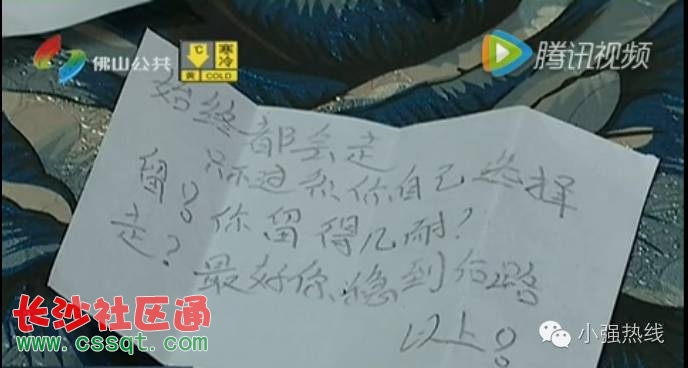 佛山公共
℃
寒冷
黄 COLD
腾讯视频
始终都会走
只不过系你自己选择
留?你留得几耐?
走?最好你稳到后路
以上!
长沙社区通
www.cssqt.com
小强热线